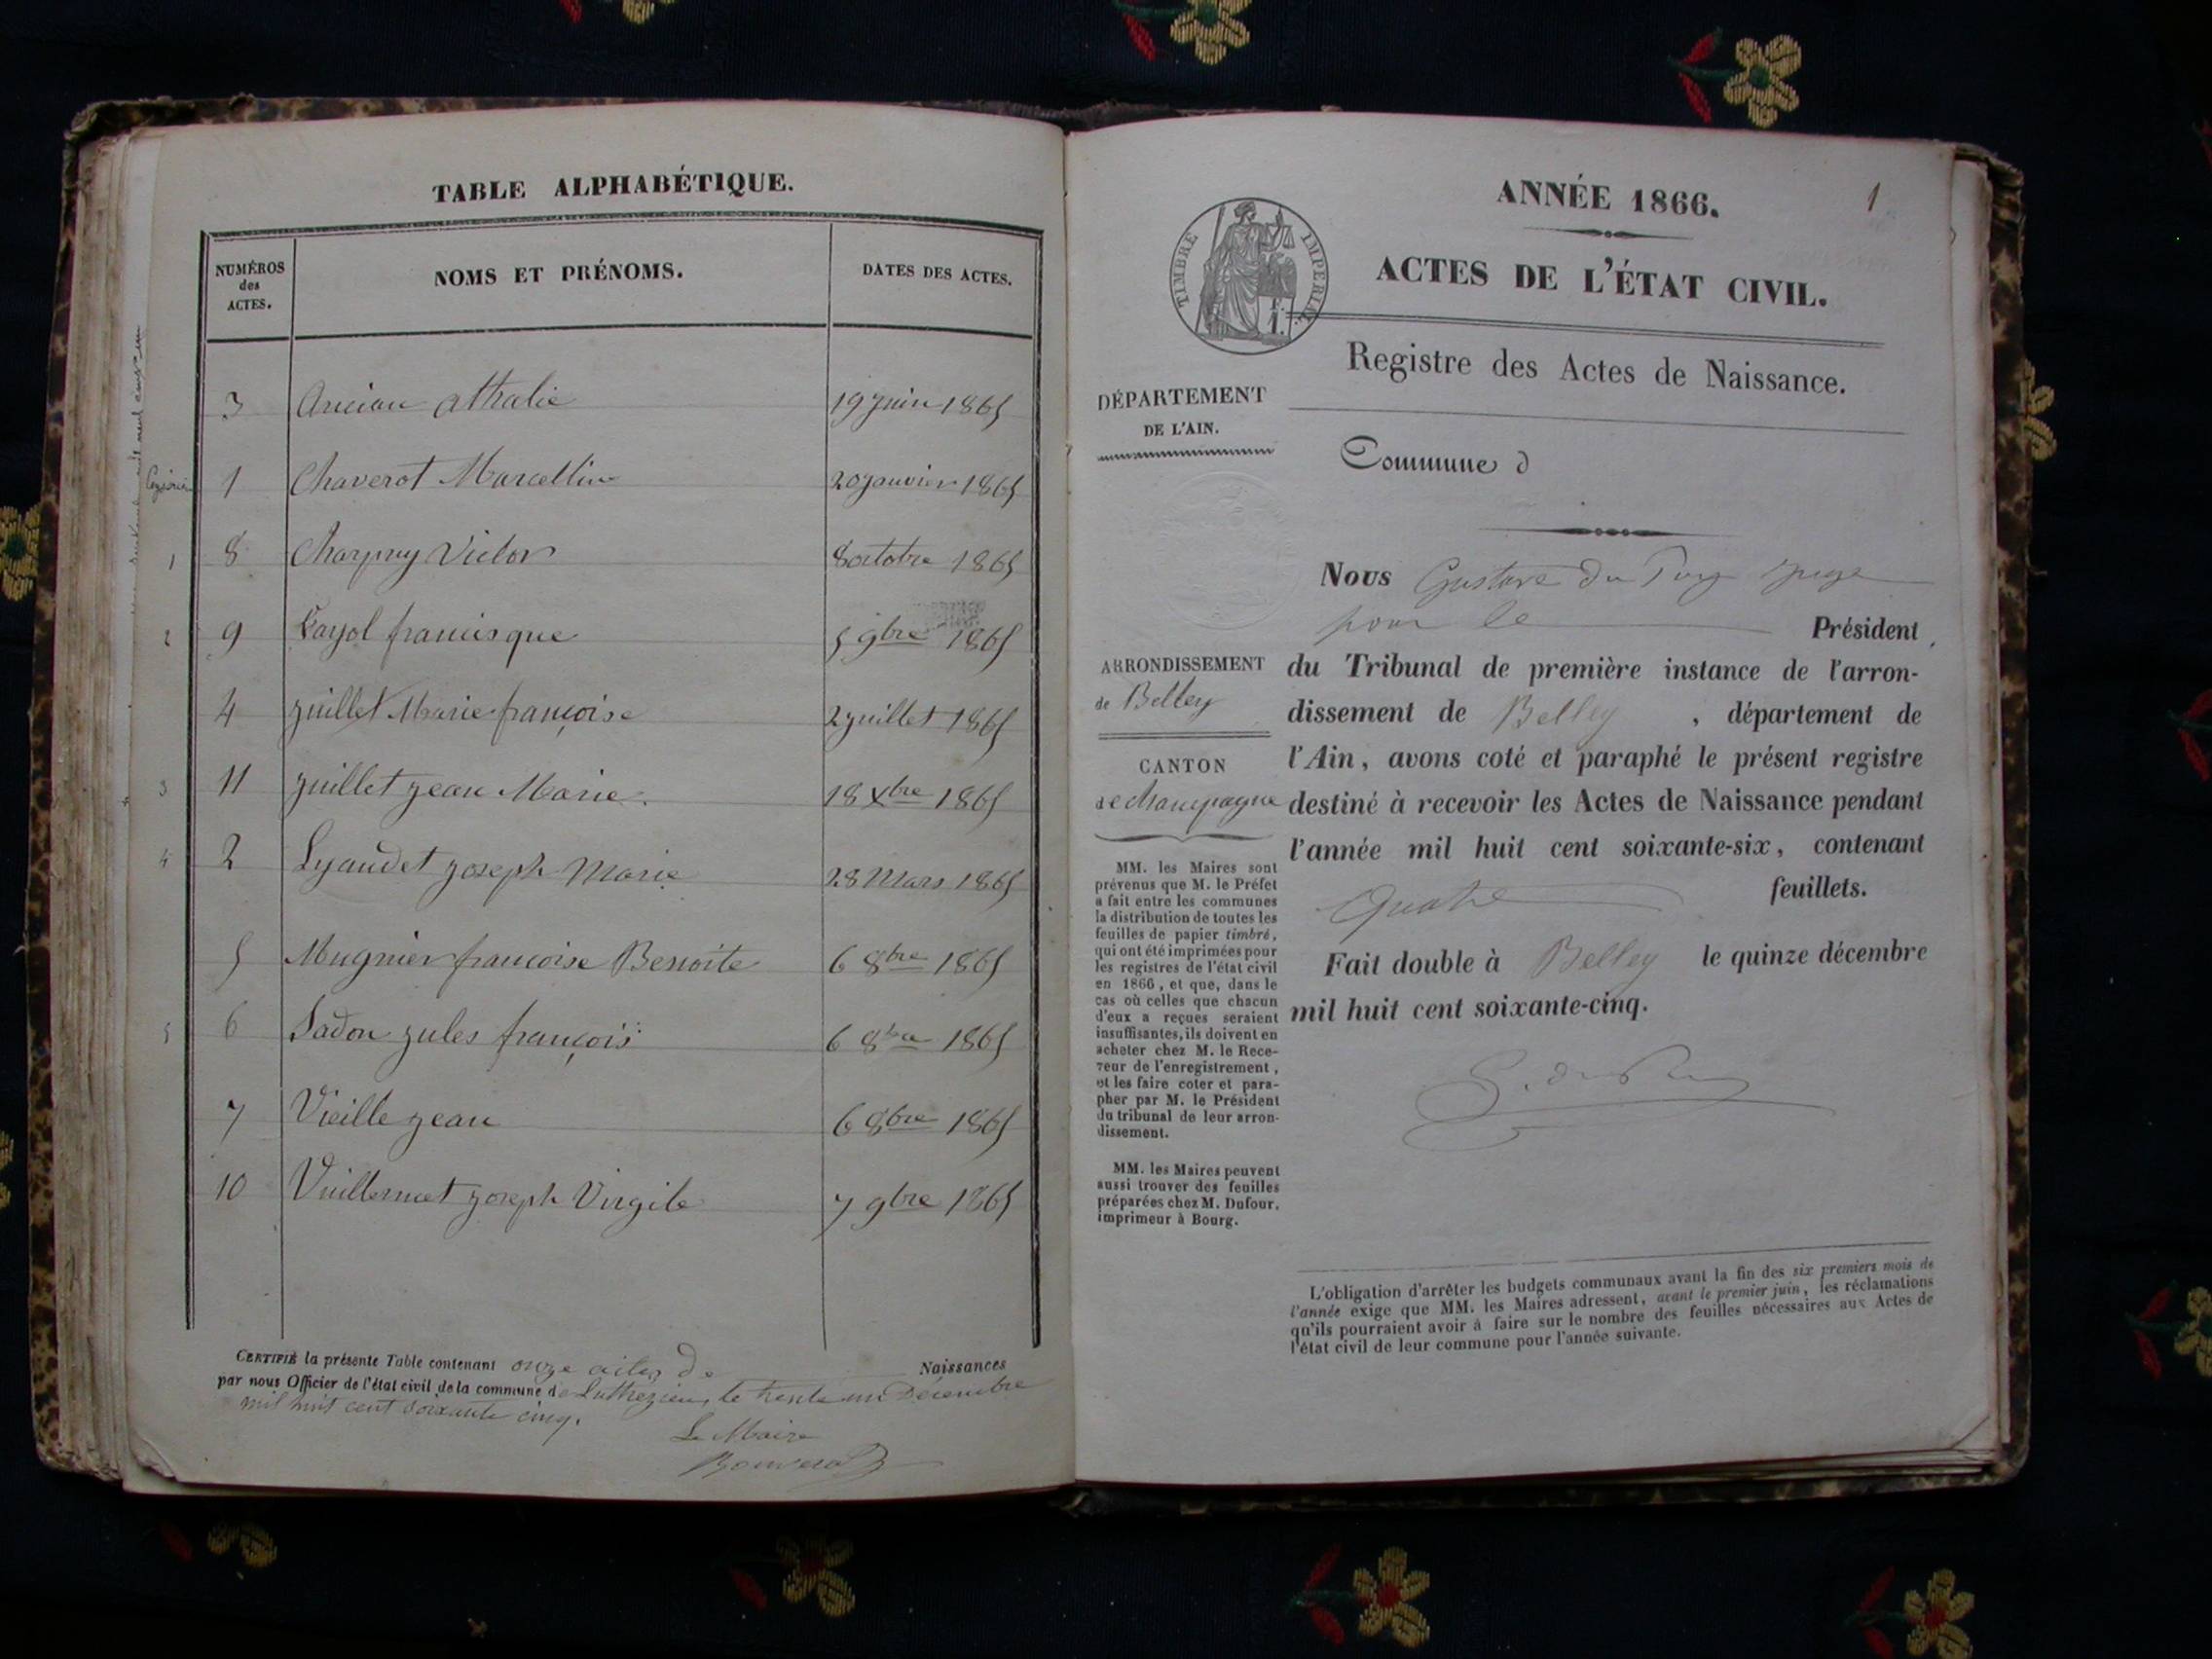 TABLE ALPHABÉTIQUE.
NUMÉROS
des
ACTES.
NOMS ET PRÉNOMS.
DATES DES ACTES.
3 Ancian athalie 19 juin 1865
1 Chaverot Marcellin 20 janvier 1865
1 8 Charpny Victor 8 octobre 1865
2 9 Fayol francisque 5 9bre 1865
4 juillet Marie françoise 2 juillet 1865
3 11 juillet jean Marie. 18 Xbre 1865
4 2 Lyaudet joseph Marie 28 Mars 1865
5 Mugnier francoise Benoite 6 8bre 1865
5 6 Sadon jules françois 6 8bre 1865
7 Vieille jean 6 8bre 1865
10 Vuillermet joseph Virgile 7 9bre 1865
CERTIFIÉ la présente Table contenant onze actes de Naissances
par nous Officier de l'état civil de la commune de Luthezieu, le trente un Décembre
mil huit cent soixante cinq.
Le Maire
1
ANNÉE 1866.
TIMBRE IMPERIAL
1 F.
ACTES DE L'ÉTAT CIVIL.
Registre des Actes de Naissance.
DÉPARTEMENT
DE L'AIN.
Commune d
Nous Gustave du Puy juge
pour le Président
du Tribunal de première instance de l'arron-
dissement de Belley , département de
l'Ain, avons coté et paraphé le présent registre
destiné à recevoir les Actes de Naissance pendant
l'année mil huit cent soixante-six, contenant
Quatre feuillets.
Fait double à Belley le quinze décembre
mil huit cent soixante-cinq.
ARRONDISSEMENT
de Belley
CANTON
de Champagne
MM. les Maires sont
prévenus que M. le Préfet
a fait entre les communes
la distribution de toutes les
feuilles de papier timbré,
qui ont été imprimées pour
les registres de l'état civil
en 1866, et que, dans le
cas où celles que chacun
d'eux a reçues seraient
insuffisantes, ils doivent en
acheter chez M. le Rece-
veur de l'enregistrement,
et les faire coter et para-
pher par M. le Président
du tribunal de leur arron-
dissement.
MM. les Maires peuvent
aussi trouver des feuilles
préparées chez M. Dufour,
imprimeur à Bourg.
L'obligation d'arrêter les budgets communaux avant la fin des six premiers mois de
l'année exige que MM. les Maires adressent, avant le premier juin, les réclamations
qu'ils pourraient avoir à faire sur le nombre des feuilles nécessaires aux Actes de
l'état civil de leur commune pour l'année suivante.